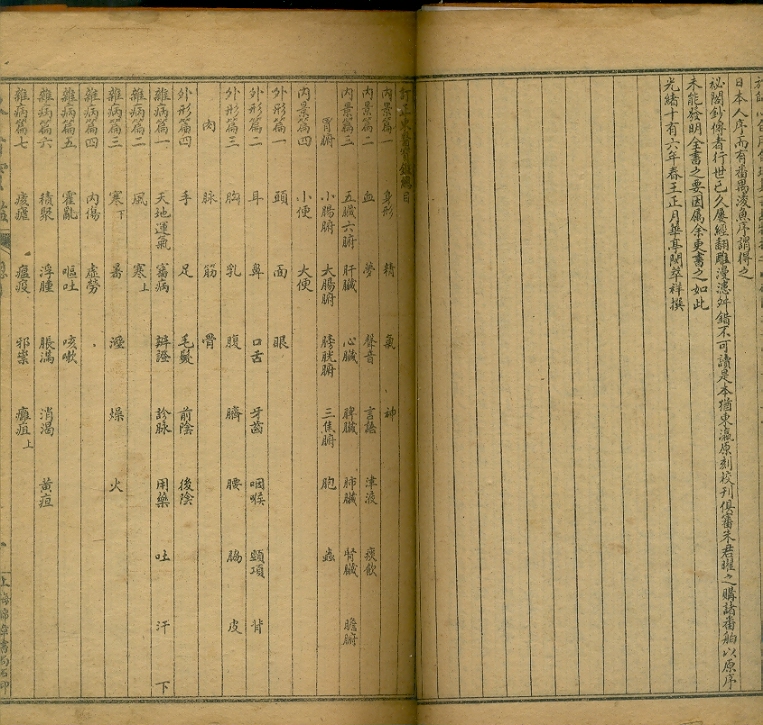 日本人序而有番禺淩魚序謂得之
祕閣鈔傳者行世已久屢經翻雕漫漶舛錯不可讀是本猶東瀛原刻校刊俱審朱君曜之購諸番舶以原序
未能發明全書之要因屬余更書之如此
光緒十有六年春王正月華亭閔萃祥撰
訂正東醫寶鑑總目
內景篇一 身形 精 氣 神
內景篇二 血 夢 聲音 言語 津液 痰飲
內景篇三 五臟六腑 肝臟 心臟 脾臟 肺臟 腎臟 膽腑
胃腑 小腸腑 大腸腑 膀胱腑 三焦腑 胞 蟲
內景篇四 小便 大便
外形篇一 頭 面 眼
外形篇二 耳 鼻 口舌 牙齒 咽喉 頸項 背
外形篇三 胸 乳 腹 臍 腰 脇 皮
肉 脉 筋 骨
外形篇四 手 足 毛髮 前陰 後陰
雜病篇一 天地運氣 審病 辨證 診脉 用藥 吐 汗 下
雜病篇二 風 寒上
雜病篇三 寒下 暑 溼 燥 火
雜病篇四 內傷 虛勞
雜病篇五 霍亂 嘔吐 咳嗽
雜病篇六 積聚 浮腫 脹滿 消渴 黃疸
雜病篇七 痎瘧 瘟疫 邪祟 癰疽上